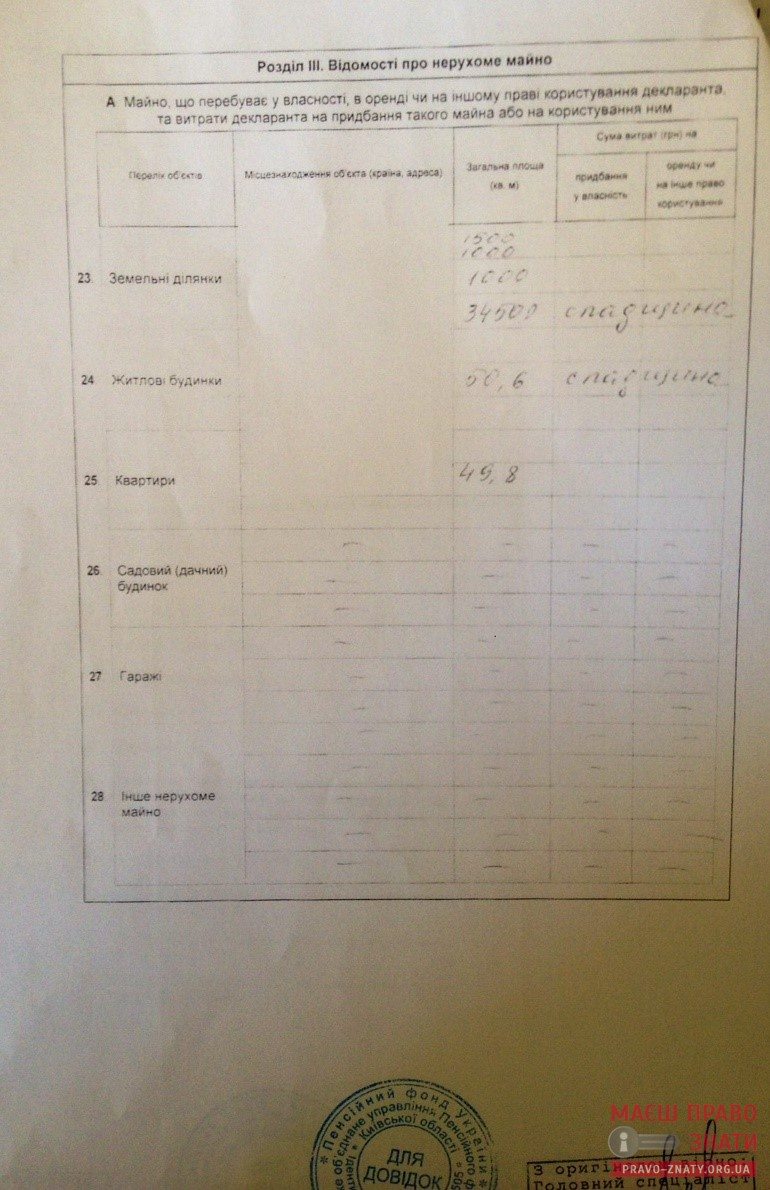 Розділ III. Відомості про нерухоме майно
А Майно, що перебуває у власності, в оренді чи на іншому праві користування декларанта,
та витрати декларанта на придбання такого майна або на користування ним
Перелік об'єктів
Місцезнаходження об'єкта (країна, адреса)
Загальна площа
(кв. м)
Сума витрат (грн) на
придбання
у власність
оренду чи
на інше право
користування
1500
1000
23. Земельні ділянки 1000
34500 спадщина
24 Житлові будинки 50,6 спадщина
25 Квартири 49,8
26. Садовий (дачний)
будинок
27 Гаражі
28 Інше нерухоме
майно
* Пенсійний фонд України *
об'єднане управління Пенсійного
Київської області *
ДЛЯ
ДОВІДОК
МАЄШ ПРАВО
ЗНАТИ
PRAVO-ZNATY.ORG.UA
З оригі
Головний спеціаліст